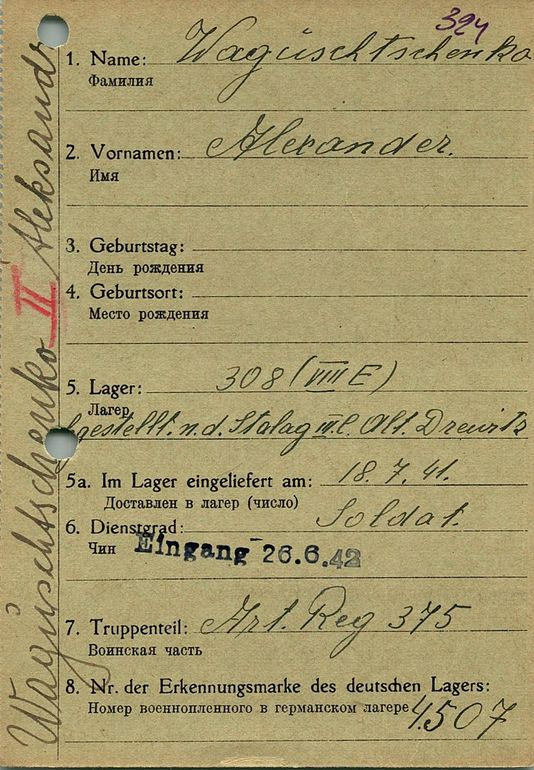 324
1. Name: Wagüschtschenko
Фамилия
2. Vornamen: Alexander.
Имя
3. Geburtstag:
День рождения
4. Geburtsort:
Место рождения
5. Lager: 308 (VIII E)
Лагер
gestellt. n. d. Stalag III C. Alt. Drewitz
5a. Im Lager eingeliefert am: 18. 7. 41.
Доставлен в лагер (число)
6. Dienstgrad: Soldat.
Чин
Eingang 26.6.42
7. Truppenteil: Art. Reg 375
Воинская часть
8. Nr. der Erkennungsmarke des deutschen Lagers:
Номер военнопленного в германском лагере 4507
Wagüschtschenko II Aleksandr